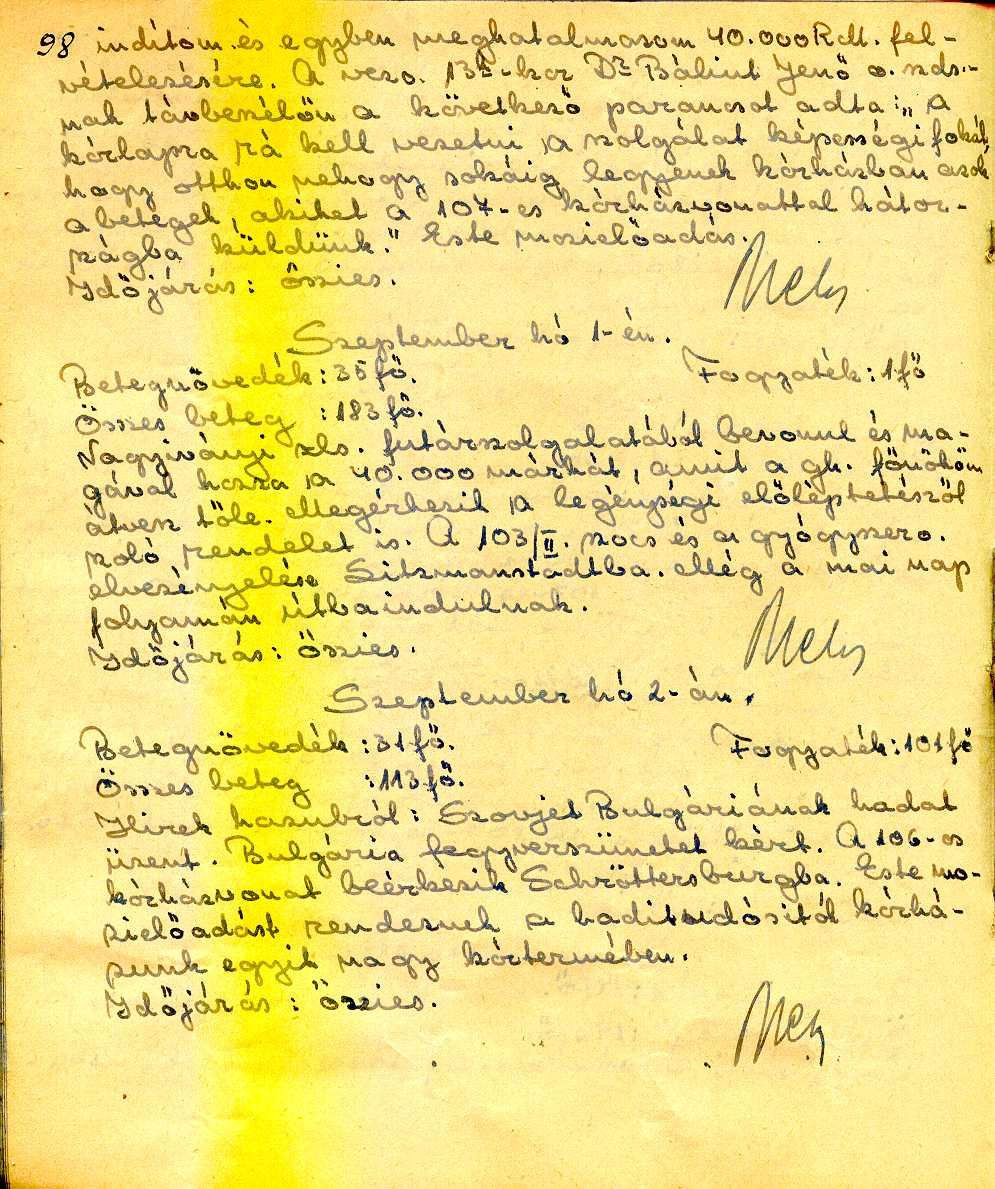 98 indítom és egyben meghatalmazom 40.000 RM. fel-
vételezésére. A vezo. 13h-kor Dr Bálint Jenő o. szds.-
nak távbeszélőn a következő parancsot adta: „A
kórlapra rá kell vezetni a szolgálat képességi fokát,
hogy otthon nehogy sokáig legyenek kórházban azok
a betegek, akiket a 107-es kórházvonattal hátor-
szágba küldünk." Este mozielőadás.
Időjárás: őszies.
Szeptember hó 1-én.
Betegnövedék: 35 fő. Fogyaték: 1 fő
Összes beteg : 183 fő.
Nagyiványi szls. futárszolgálatából bevonul és ma-
gával hozza a 40.000 márkát, amit a gh. főnököm
átvesz tőle. Megérkezik a legénységi előléptetésről
szoló rendelet is. A 103/II. kocs és a gyógyszero.
elvezénylése Litzmanstadtba. Még a mai nap
folyamán útbaindulnak.
Időjárás: Őszies.
Szeptember hó 2-án.
Betegnövedék : 31 fő. Fogyaték: 101 fő
Összes beteg : 113 fő.
Hirek hazulról: Szovjet Bulgáriának hadat
üzent. Bulgária fegyverszünetet kért. A 106-os
kórházvonat beérkezik Schröttersburgba. Este mo-
zielőadást rendeznek a haditudósitók kórhá-
zunk egyik nagy kórtermében.
Időjárás: Őszies.